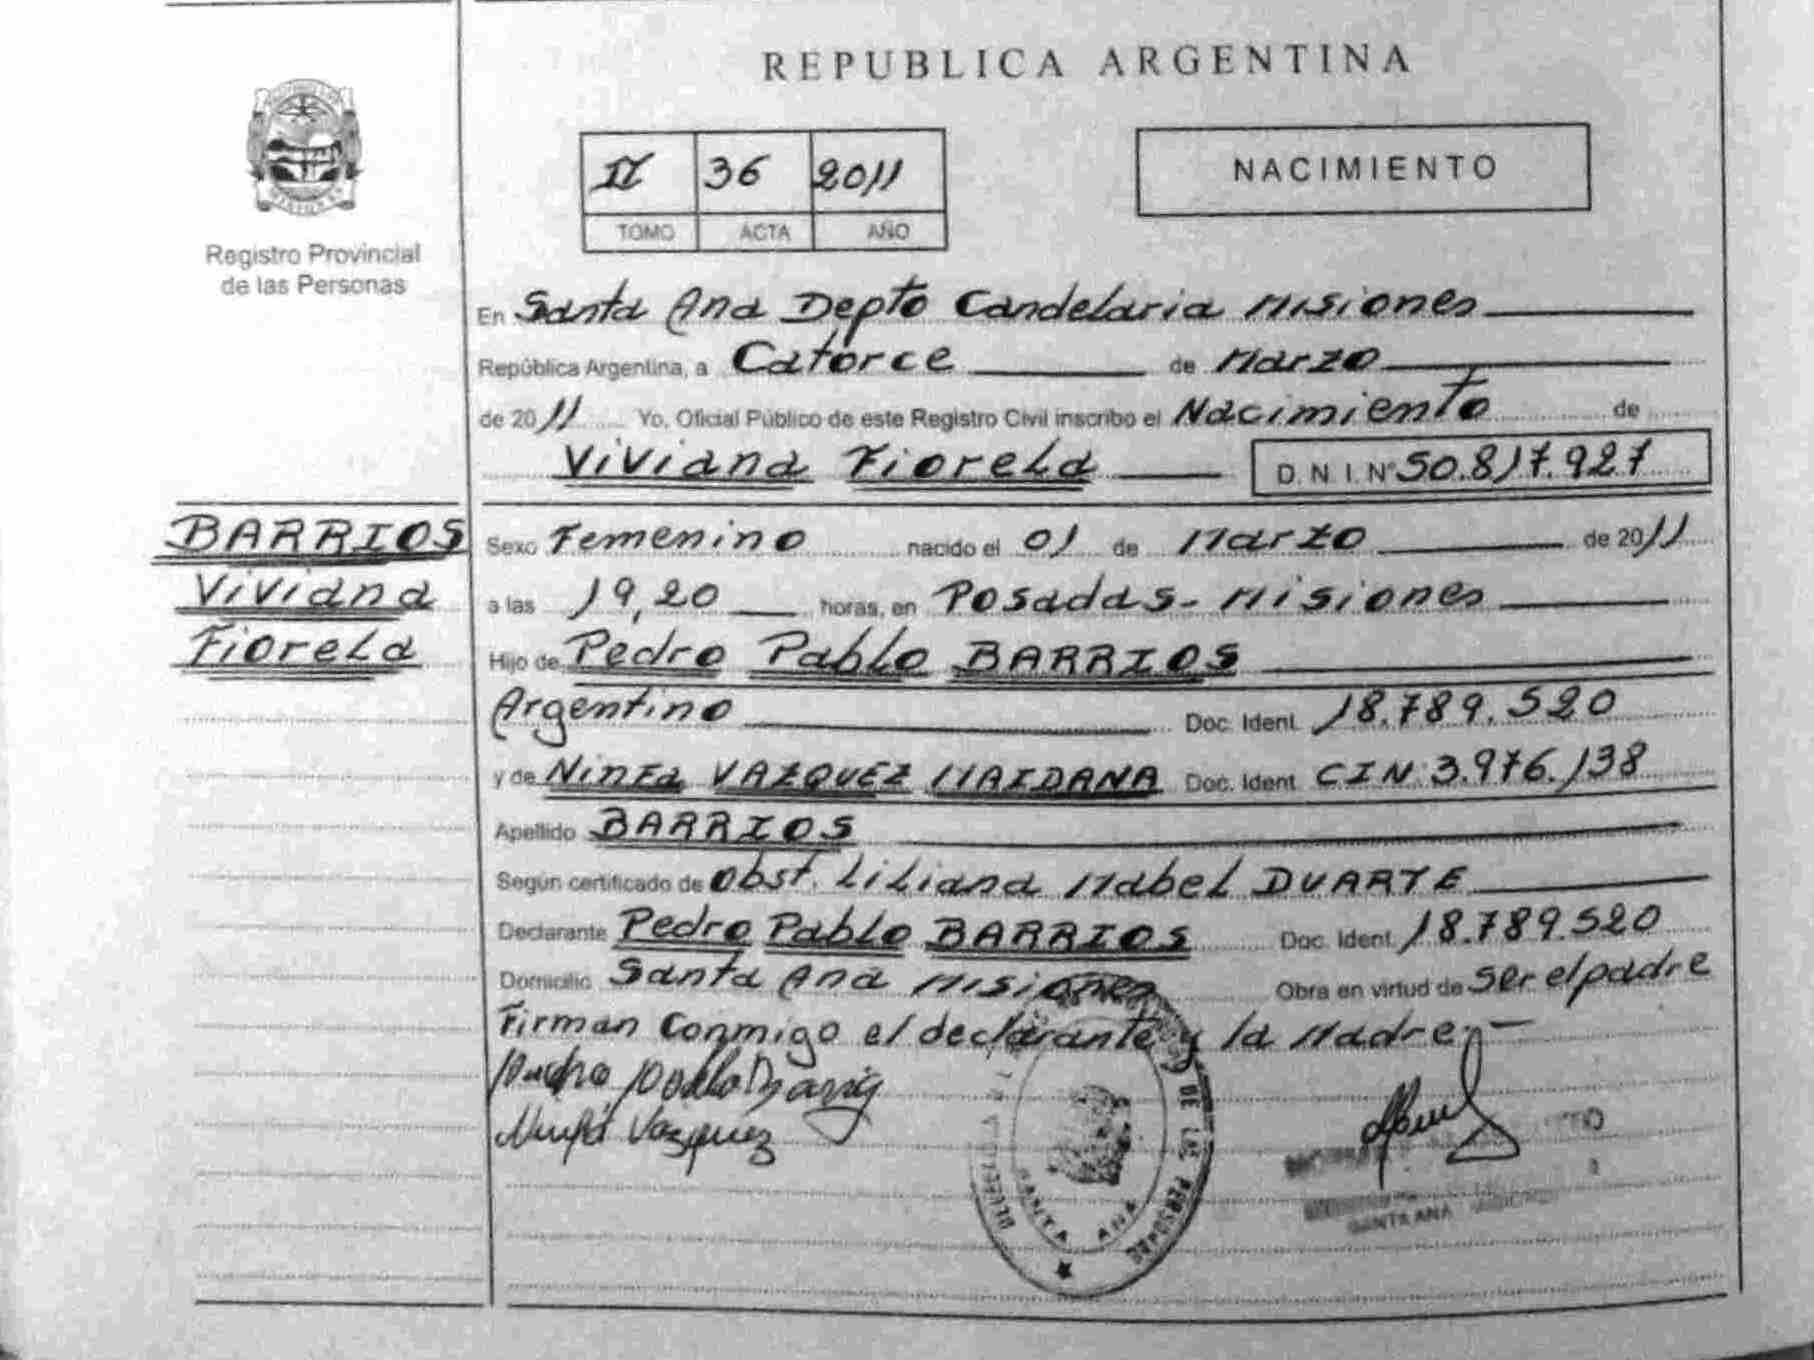 REPUBLICA ARGENTINA
Registro Provincial
de las Personas
II 36 2011
TOMO ACTA AÑO
NACIMIENTO
En Santa Ana Depto Candelaria Misiones
República Argentina, a Catorce de Marzo
de 2011 Yo, Oficial Público de este Registro Civil inscribo el Nacimiento de
Viviana Fiorela D.N.I.Nº 50.817.927
BARRIOS
Viviana
Fiorela
Sexo Femenino nacido el 01 de Marzo de 2011
a las 19,20 horas, en Posadas - Misiones
Hijo de Pedro Pablo BARRIOS
Argentino Doc. Ident. 18.789.520
y de Ninfa VAZQUEZ MAIDANA Doc. Ident. CIN: 3.976.138
Apellido BARRIOS
Según certificado de Obst. Liliana Mabel DUARTE
Declarante Pedro Pablo BARRIOS Doc. Ident. 18.789.520
Domicilio Santa Ana Misiones Obra en virtud de ser el padre
Firman conmigo el declarante y la Madre.-
Pedro Pablo Barrios
Ninfa Vazquez
DE LAS PERSONAS
SANTA ANA
SANTA ANA